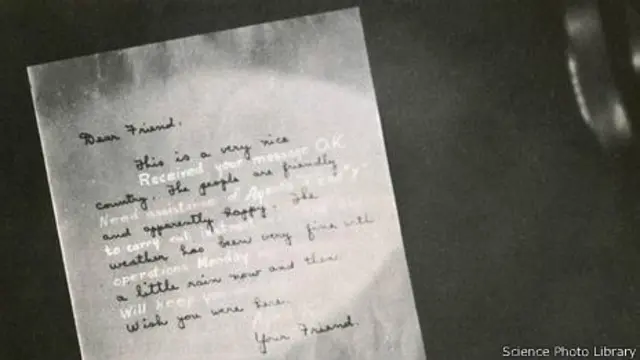 Dear Friend,
This is a very nice
Received your message O.K.
country. The people are friendly
Need assistance of Agents
and apparently happy. The
to carry out
weather has been very fine with
operations Monday
a little rain now and then.
Will keep you
Wish you were here.
Your Friend.
Science Photo Library